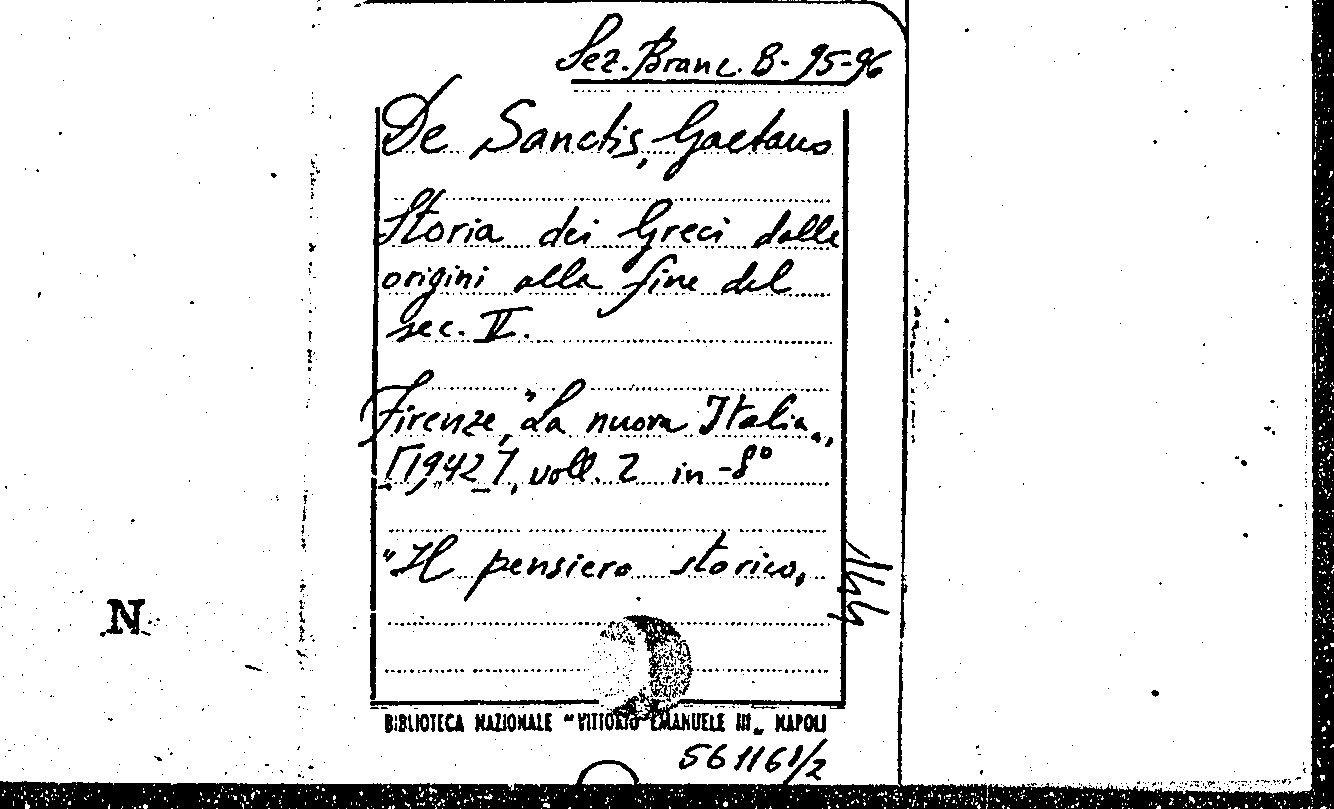 Sez. Branc. B- 95-96
De Sanctis, Gaetano
Storia dei Greci dalle
origini alla fine del
sec. V.
Firenze, "La nuova Italia„,
[1942], voll. 2 in-8°
"Il pensiero storico„
N
BIBLIOTECA NAZIONALE "VITTORIO EMANUELE III„ NAPOLI
561161/2